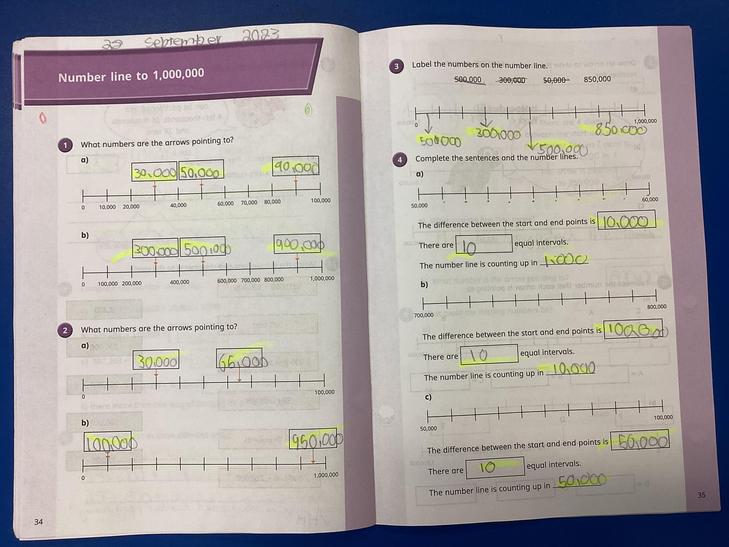 29 September 2023
Number line to 1,000,000
1 What numbers are the arrows pointing to?
a)
30,000 50,000 90,000
0 10,000 20,000 40,000 60,000 70,000 80,000 100,000
b)
300,000 500,000 900,000
0 100,000 200,000 400,000 600,000 700,000 800,000 1,000,000
2 What numbers are the arrows pointing to?
a)
30,000 65,000
0 100,000
b)
100,000 950,000
0 1,000,000
34
3 Label the numbers on the number line.
500,000 300,000 50,000 850,000
0 1,000,000
50,000 300,000 500,000 850,000
4 Complete the sentences and the number lines.
a)
50,000 60,000
The difference between the start and end points is 10,000
There are 10 equal intervals.
The number line is counting up in 1,000
b)
700,000 800,000
The difference between the start and end points is 100,000
There are 10 equal intervals.
The number line is counting up in 10,000
c)
50,000 100,000
The difference between the start and end points is 50,000
There are 10 equal intervals.
The number line is counting up in 50,000
35